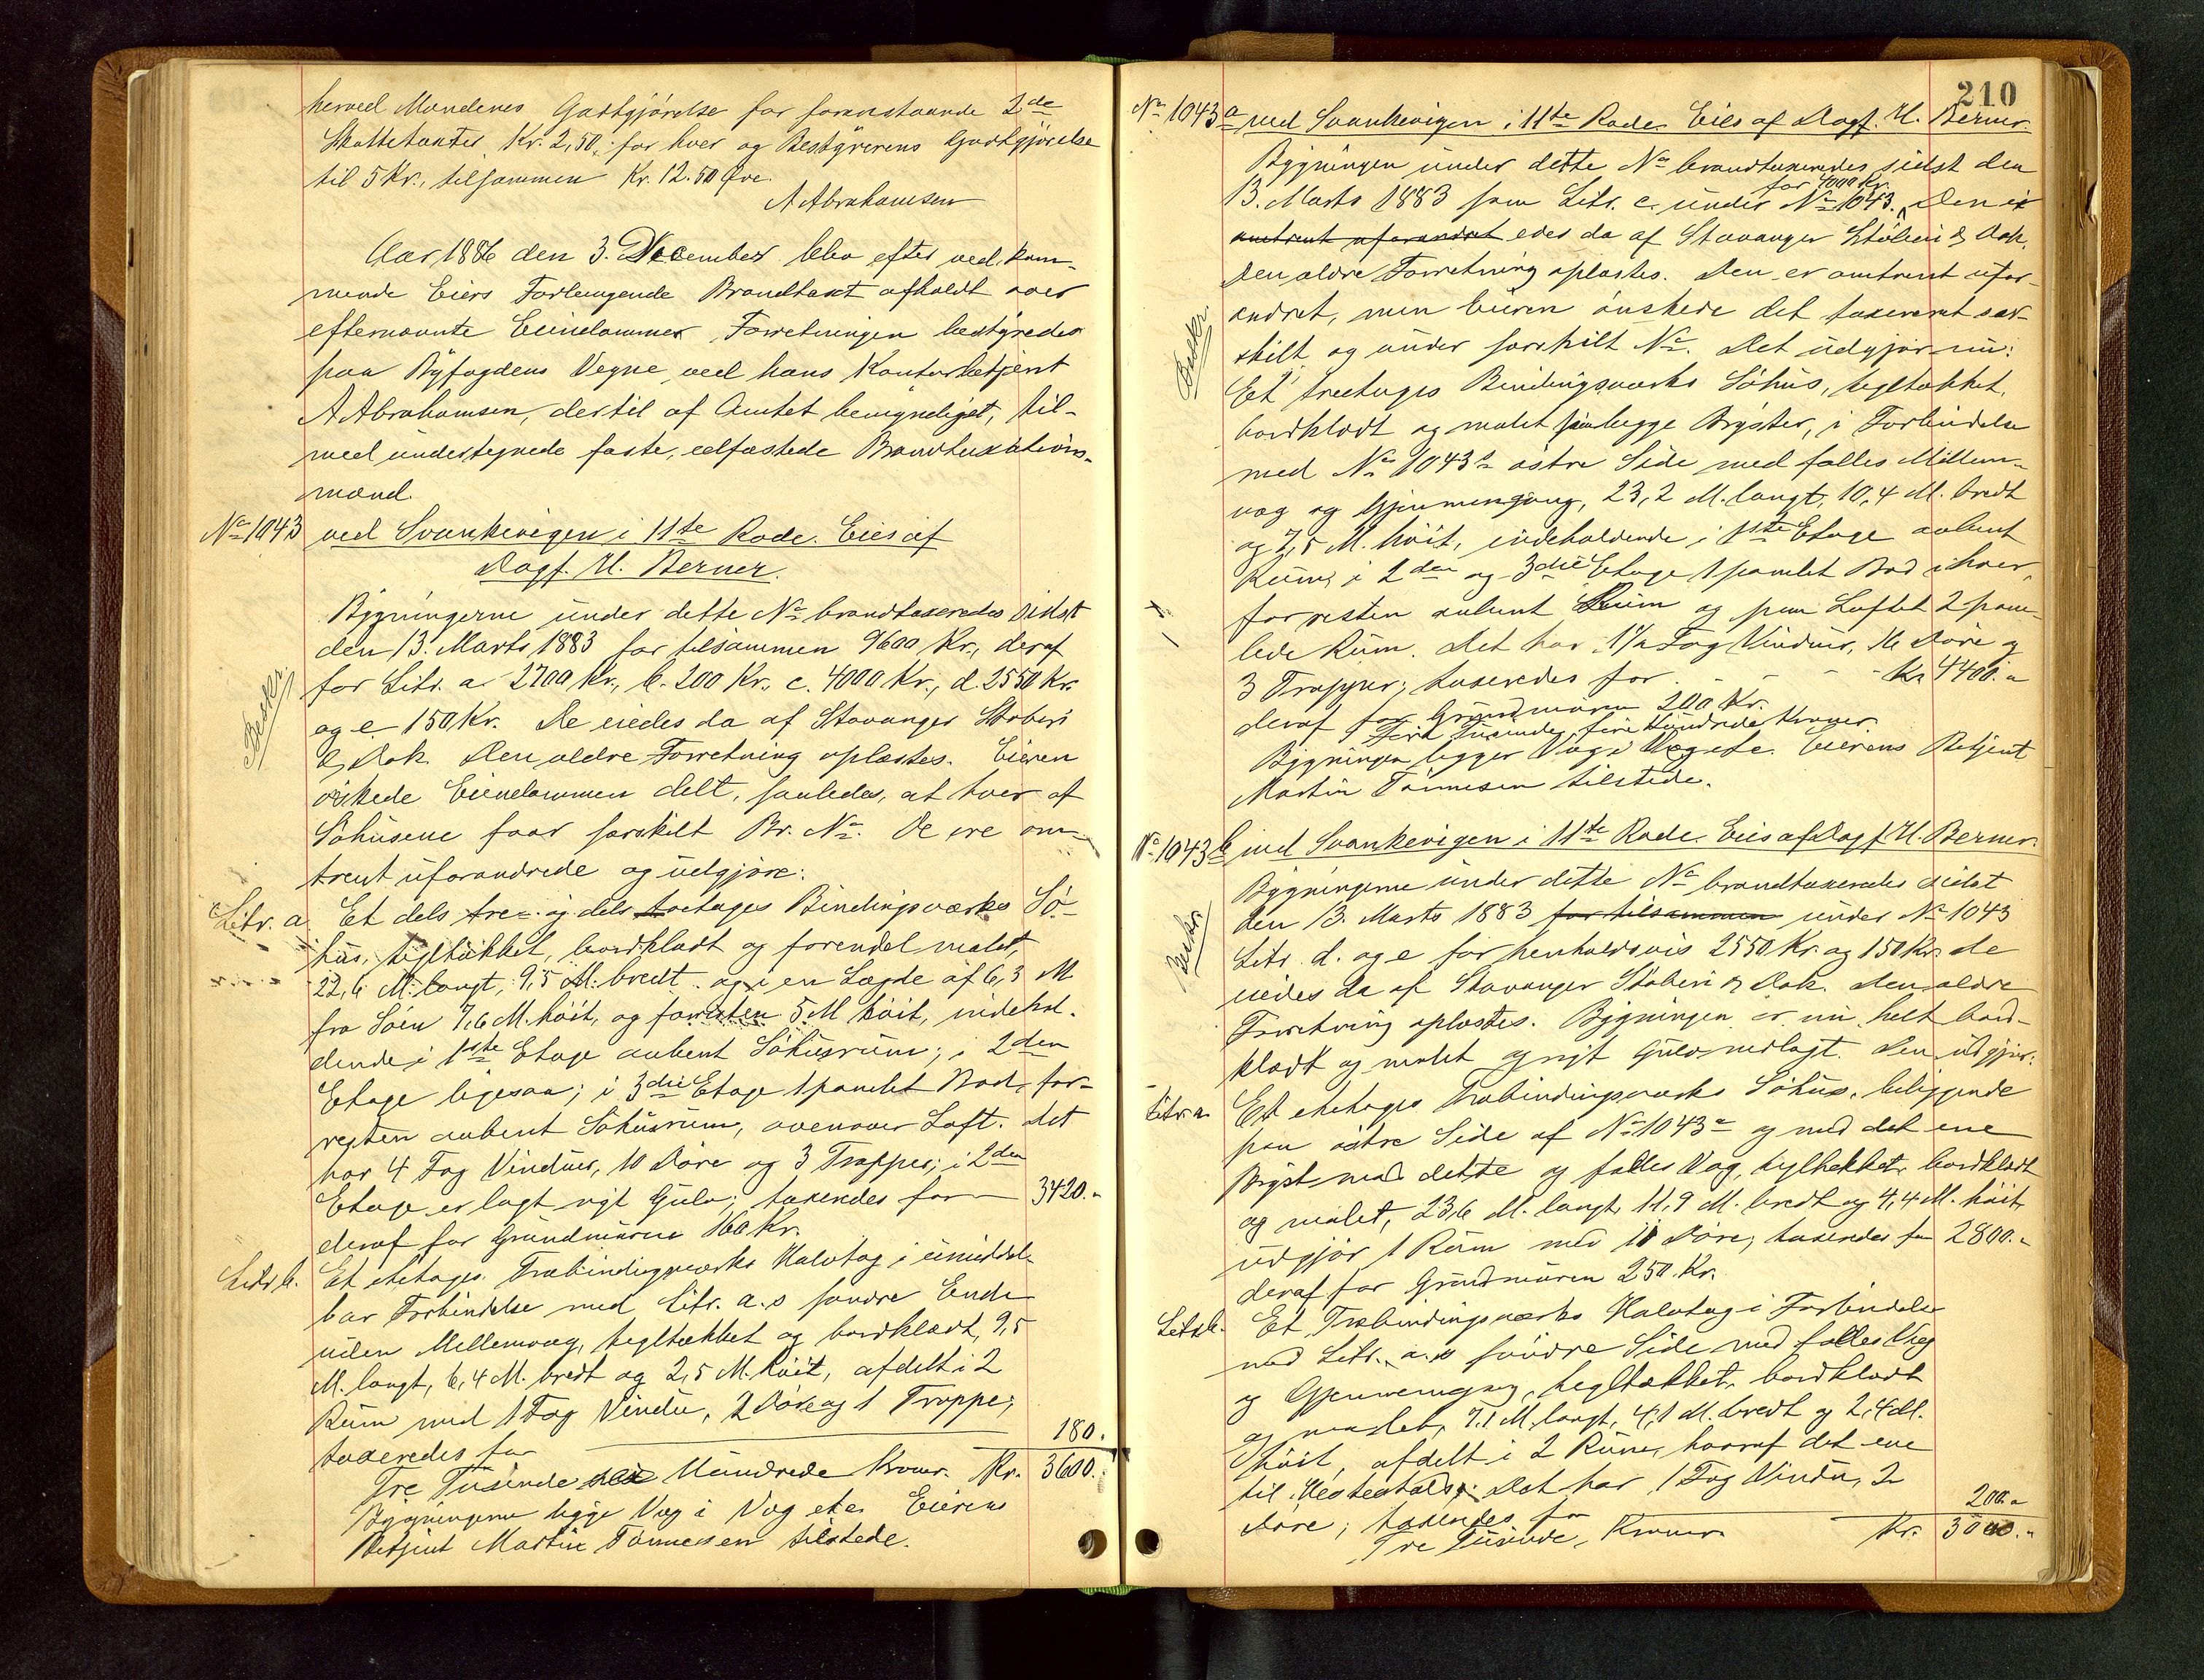 herved Mændenes Godtgjørelse for foranstaaende 2de
Skattetaxter Kr. 2,50, for hver og Bestyrerens Godtgjørelse
til 5 Kr., tilsammen Kr. 12.50 Øre.
A Abrahamsen
Aar 1886 den 3. December blev efter vedkom-
mende Eiers Forlangende Brandtaxt afholdt over
efternævnte Eiendommer. Forretningen bestyredes
paa Byfogdens Vegne ved hans Kontorbetjent
A Abrahamsen, dertil af Amtet bemyndiget, til-
med undertegnede faste, edfæstede Brandtaxations-
mænd.
No 1043 ved Svankevigen i 11te Rode. Eies af
Dagf. H. Berner.
Bygningerne under dette No brandtaxeredes sidst
den 13. Marts 1883 for tilsammen 9600 Kr., deraf
for Litr. a 2700 Kr., b. 200 Kr., c. 4000 Kr., d. 2550 Kr.
og e 150 Kr. De eiedes da af Stavanger Støberi
& Dok. Den ældre Forretning oplæstes. Eieren
Beskr.
ønskede Eiendommen delt, saaledes, at hver af
Søhusene faar særskilt Br. No. De ere om-
trent uforandrede og udgjøre:
Litr. a Et dels tre- og dels toetages Bindingsværks Sø-
hus, tegltækket, bordklædt og forendel malet,
22,6 M. langt, 9,5 M. bredt og i en Længde af 6,3 M
fra Søen 7,6 M. høit, og forresten 5 M høit, indehol-
dende i 1ste Etage aabent Søhusrum; i 2den
Etage ligesaa; i 3die Etage 1 panelet Bod, for-
resten aabent Søhusrum, ovenover Loft. Det
har 4 Fag Vinduer, 10 Døre og 3 Trapper; i 2den
Etage er lagt nyt Gulv; taxeredes for 3420.
deraf for Grundmuren 160 Kr.
Litr b. Et etetages Træbindingsværks Halvtag i umiddel-
bar Forbindelse med Litr. a.s søndre Ende
uden Mellemvæg, tegltækket og bordklædt, 9,5
M. langt, 6,4 M. bredt og 2,5 M. høit, afdelt i 2
Rum med 1 Fag Vindu, 2 Døre og 1 Trappe;
taxeredes for 180.
Tre Tusinde sex Hundrede Kroner. Kr. 3600.
Bygningerne ligge Væg i Væg etc. Eierens
Betjent Martin Tønnessen tilstede.
210
No 1043 a ved Svankevigen i 11te Rode. Eies af Dagf. H. Berner.
Bygningen under dette No brandtaxeredes sidst den
for 4000 Kr.
13. Marts 1883 som Litr. c. under No 1043. Den er
omtrent uforandret eies da af Stavanger Støberi & Dok.
Den ældre Forretning oplæstes. Den er omtrent ufor-
andret, men Eieren ønskede det taxeret sær-
Beskr.
skilt og under særskilt No. Det udgjør nu:
Et treetages Bindingsværks Søhus, tegltækket,
bordklædt og malet paa begge Bryster, i Forbindelse
med No 1043 b østre Side med fælles Mellem-
væg og Gjennemgang, 23,2 M. langt, 10,4 M. bredt
og 7,5 M. høit, indeholdende i 1ste Etage aabent
Rum, i 2den og 3die Etage 1 panelet Bod i hver,
forresten aabent Rum og paa Loftet 2 pane-
lede Rum. Det har 11 Fag Vinduer, 16 Døre og
3 Trapper; taxeredes for Kr 4400.
deraf for Grundmuren 200 Kr.
Fire Tusinde, fire Hundrede Kroner.
Bygningen ligger Væg i Væg etc. Eierens Betjent
Martin Tønnesen tilstede.
No 1043 b ved Svankevigen i 11te Rode. Eies af Dagf. H. Berner.
Bygningerne under dette No brandtaxeredes sidst
den 13. Marts 1883 for tilsammen under No 1043
Beskr.
Litr. d. og e for henholdsvis 2550 Kr. og 150 Kr. de
eiedes da af Stavanger Støberi & Dok. Den ældre
Forretning oplæstes. Bygningen er nu helt bord-
klædt og malet og nyt Gulv nedlagt. Den udgjør:
Litr. a. Et etetages Træbindingsværks Søhus, beliggende
paa østre Side af No 1043 a og med det ene
Bryst mod dette og fælles Væg, tegltækket, bordklædt
og malet, 23,6 M. langt, 11,9 M. bredt og 4,4 M. høit,
udgjør 1 Rum med 10 Døre, taxeredes for 2800.
deraf for Grundmuren 250 Kr.
Litr. b. Et Træbindingsværks Halvtag i Forbindelse
med Litr. a.s søndre Side med fælles Væg
og Gjennemgang, tegltækket, bordklædt
og malet, 7,1 M. langt, 4,1 M. bredt og 2,4 M.
høit, afdelt i 2 Rum, hvoraf det ene
til Hestestald. Det har 1 Fag Vindu, 2
Døre; taxeredes for 200.
Tre Tusinde, Kroner Kr. 3000.